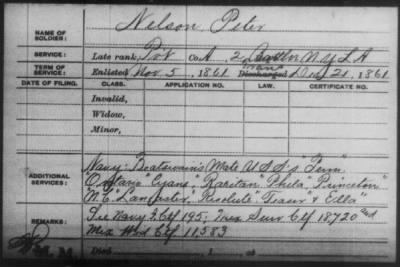 NAME OF SOLDIER: Nelson, Peter
SERVICE: Late rank, Pvt Co. A, 2 Battn N.Y.L.A
TERM OF SERVICE: Enlisted Nov. 5, 1861 Discharged Tran Dec 21, 1861
DATE OF FILING. CLASS. APPLICATION NO. LAW. CERTIFICATE NO.
Invalid,
Widow,
Minor,
ADDITIONAL SERVICES: Navy: Boatswain's Mate U.S.S's "Penn"
"Ontario" "Cyane" "Raritan" "Phila" "Princeton"
"N.C." "Lancaster," "Resolute" & "Ella"
REMARKS: See Navy Ctf 195; Mex Surv Ctf 18720 and
Mex Wid Ctf 11583
Died , 1 , at